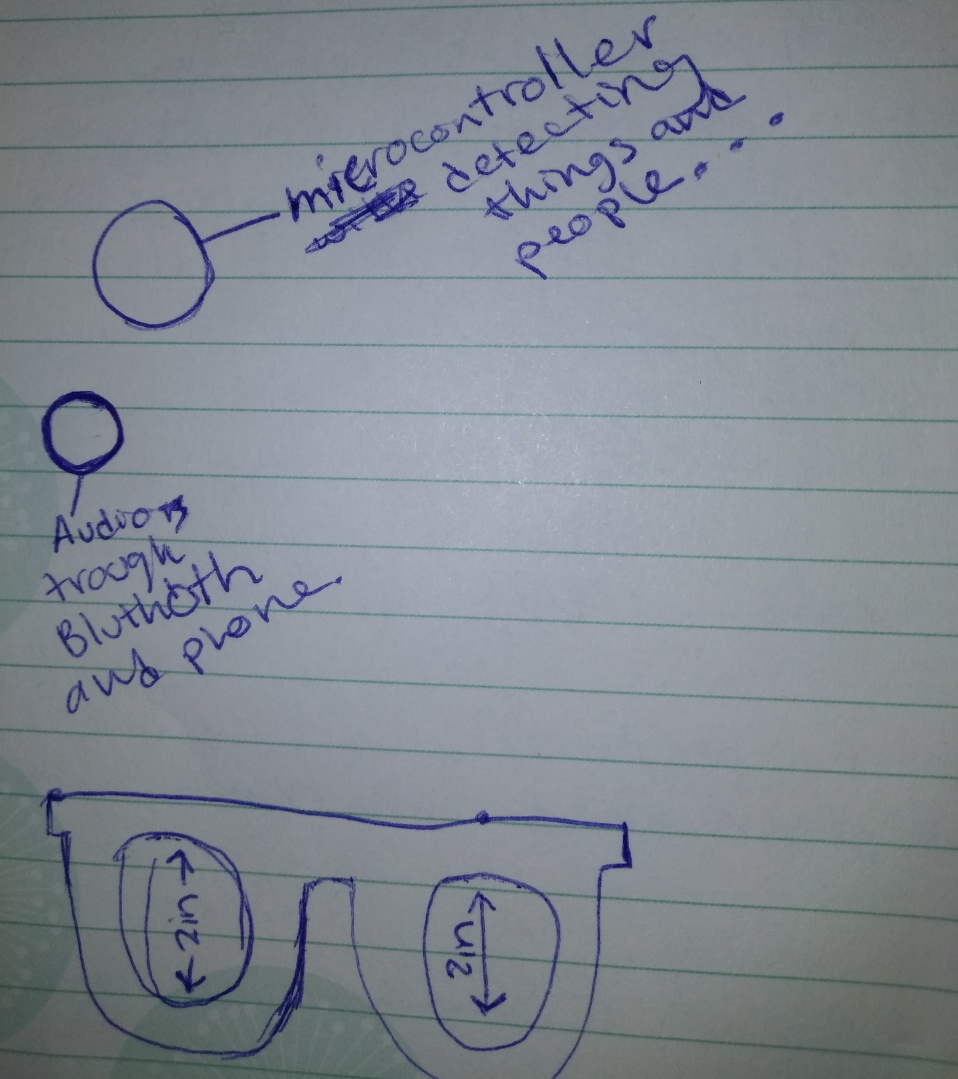 microcontroller
detecting
things and
people...
Audio
trough
Bluthoth
and phone.
2in
2in